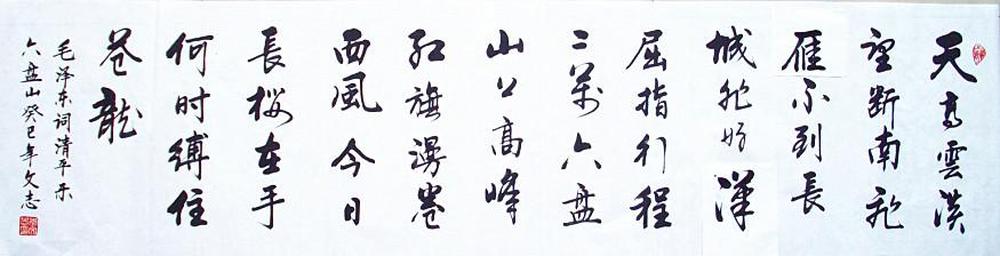 天高雲淡
望断南飛
雁不到長
城非好漢
屈指行程
二萬六盘
山上高峰
红旗漫卷
西風今日
長缨在手
何时缚住
苍龍
毛泽东词清平乐
六盘山癸巳年文志